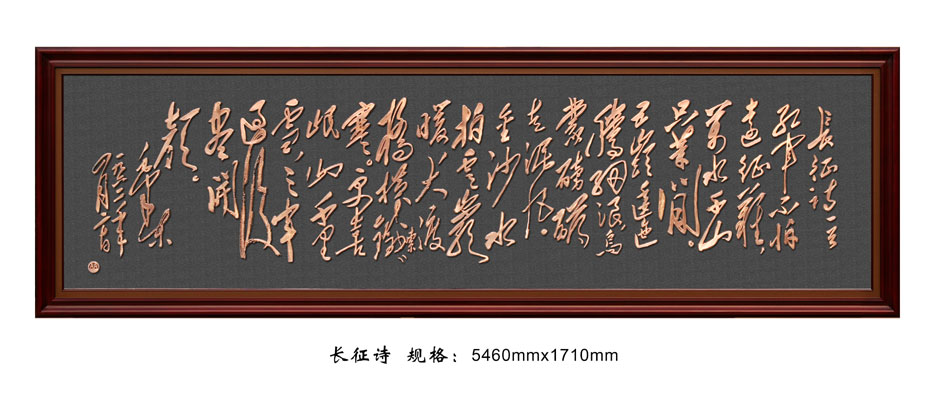 長征詩一首
紅軍不怕
遠征難，
萬水千山
只等閒。
五嶺逶迤
騰細浪，烏
蒙磅礴
走泥丸。
金沙水
拍雲崖
暖，大渡
橋橫鐵索
寒。更喜
岷山千里
雪，三軍
過後
盡開
顏。
毛澤東
一九六二年
长征诗 规格：5460mmx1710mm